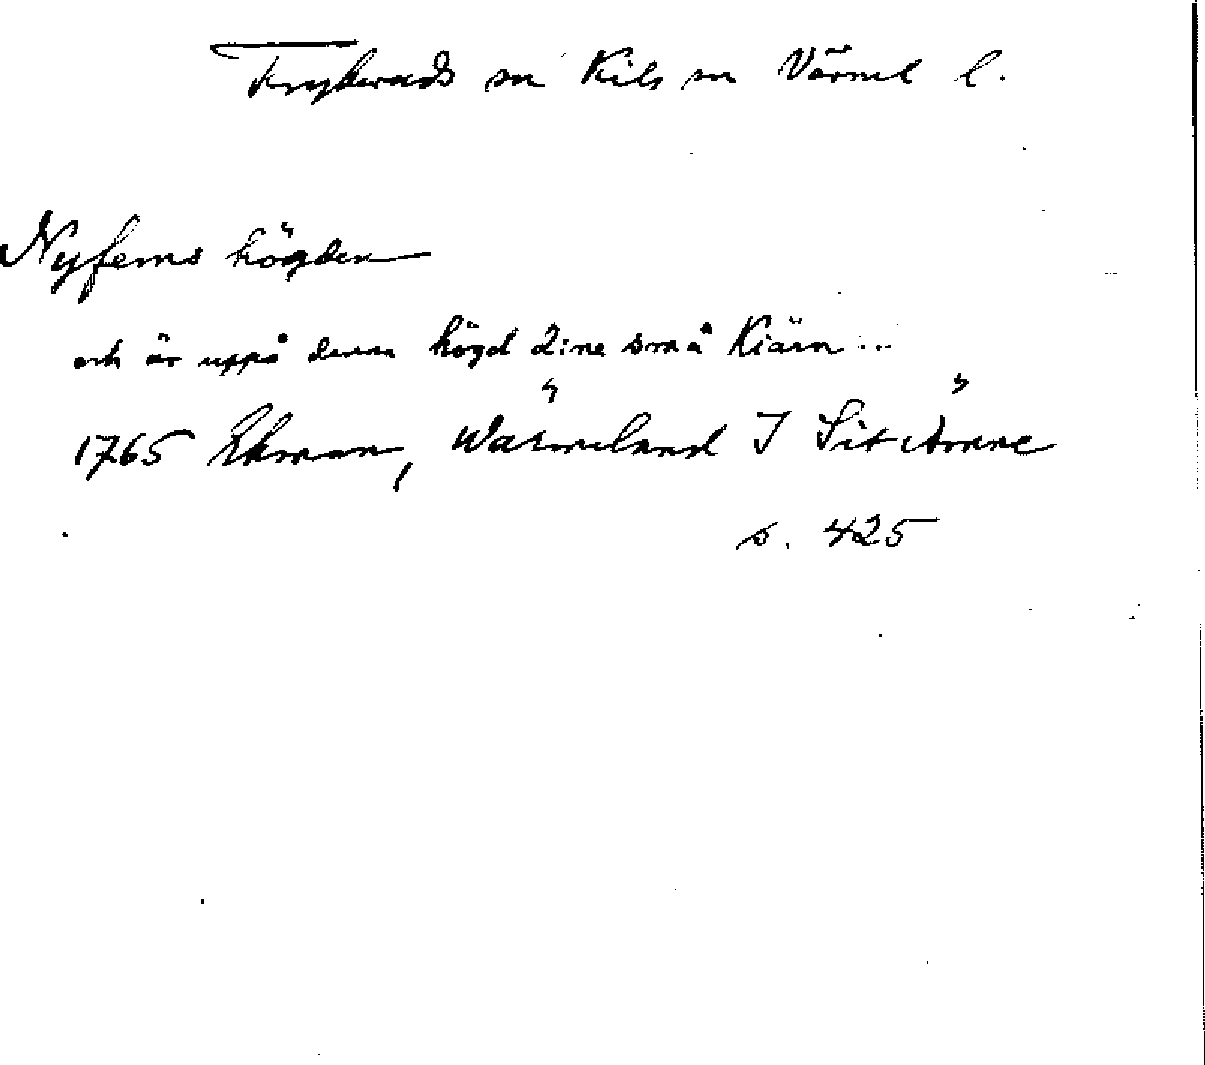 Frykeruds sn Kils sn Värml l.
Nyfems högden
och är uppå denna högd 2:ne små Kiärn...
1765 Ekman, Wärmeland I Sit Ämne
s. 425